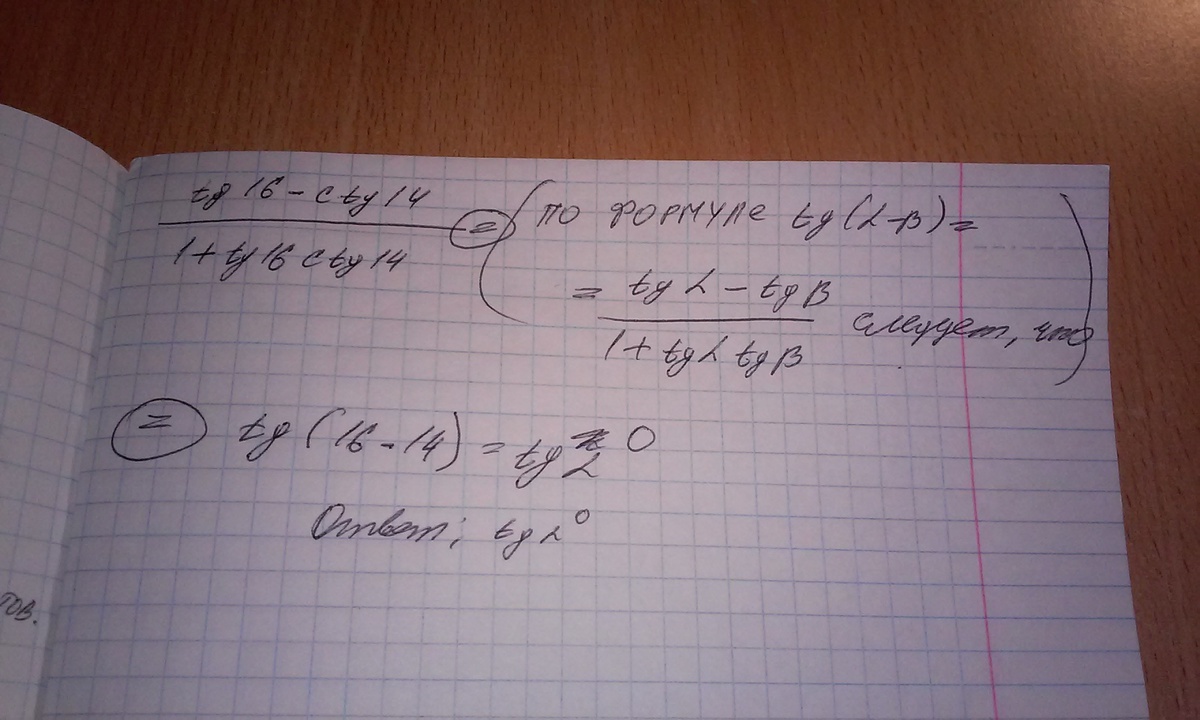 tg 16 - ctg 14
1 + tg 16 ctg 14
= (по формуле tg (α - β) =
= tg α - tg β
1 + tg α tg β
следует, что)
= tg (16 - 14) = tg 2 0
Ответ; tg 2°
тов.